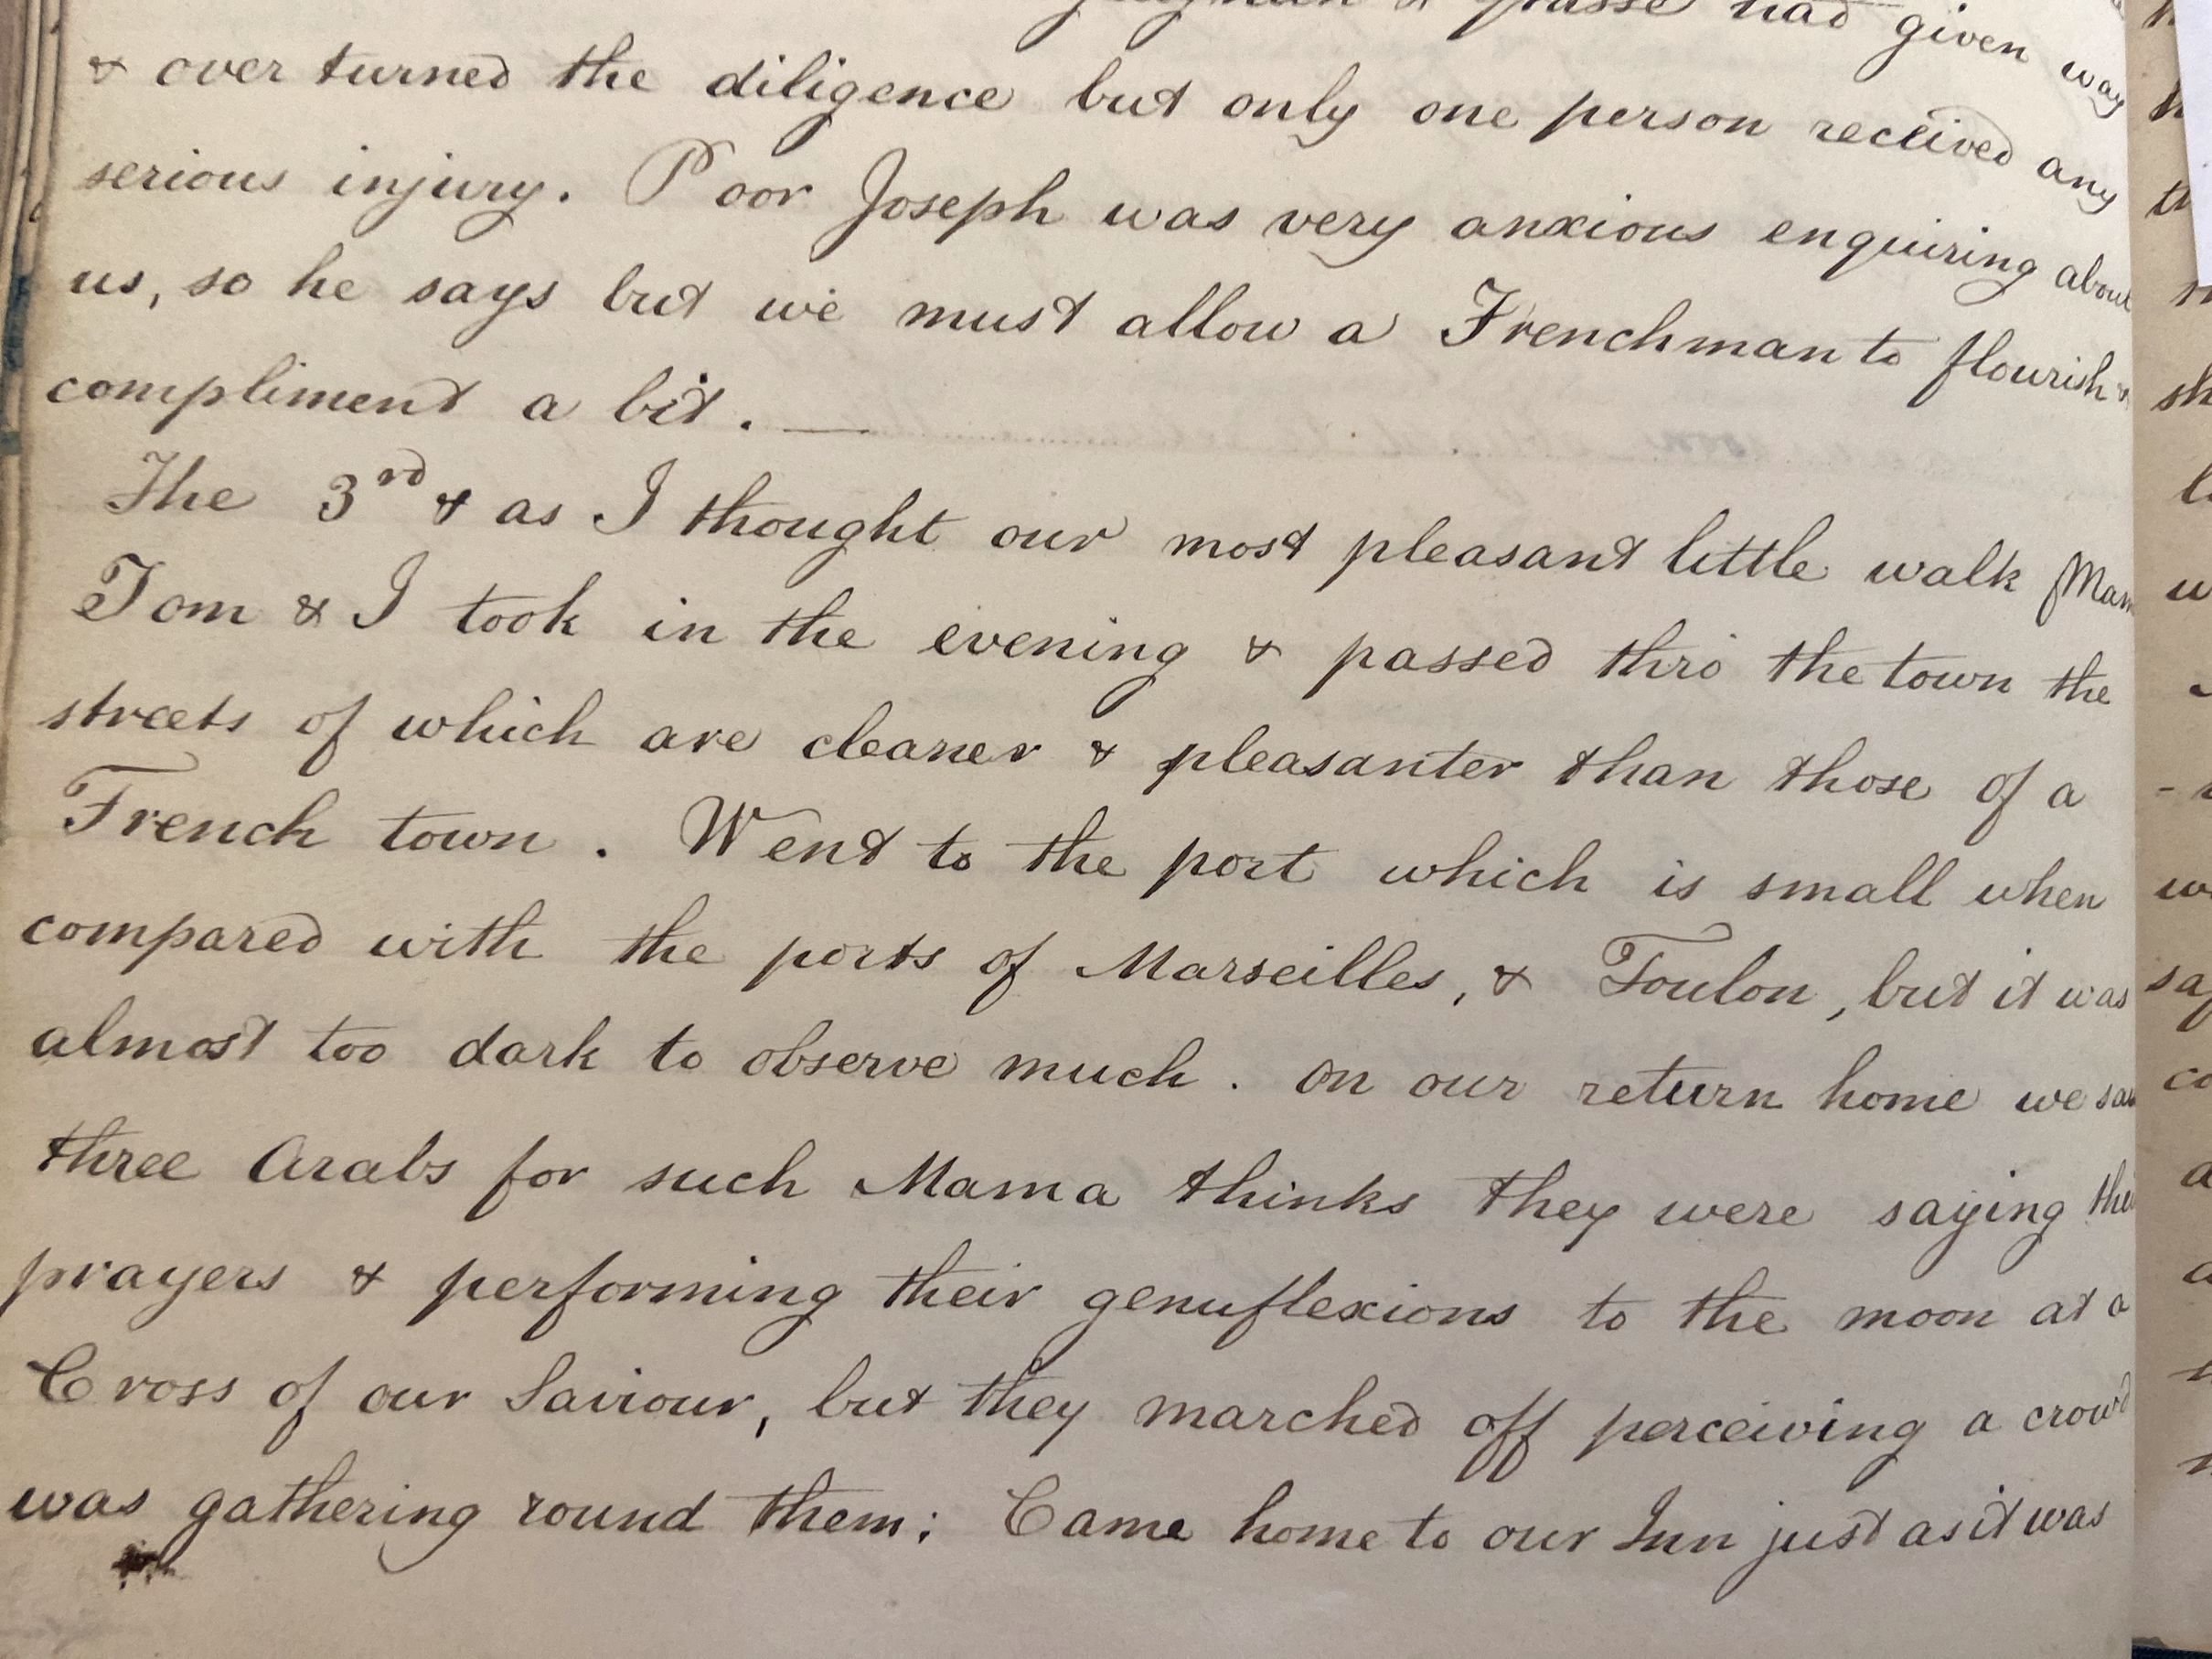 & Grasse had given way
& over turned the diligence but only one person received any
serious injury. Poor Joseph was very anxious enquiring about
us, so he says but we must allow a Frenchman to flourish &
compliment a bit. —
The 3rd & as I thought our most pleasant little walk Mam
Tom & I took in the evening & passed thro' the town the
streets of which are cleaner & pleasanter than those of a
French town. Went to the port which is small when
compared with the ports of Marseilles, & Toulon, but it was
almost too dark to observe much. On our return home we saw
three Arabs for such Mama thinks they were saying their
prayers & performing their genuflexions to the moon at a
Cross of our Saviour, but they marched off perceiving a crowd
was gathering round them; Came home to our Inn just as it was